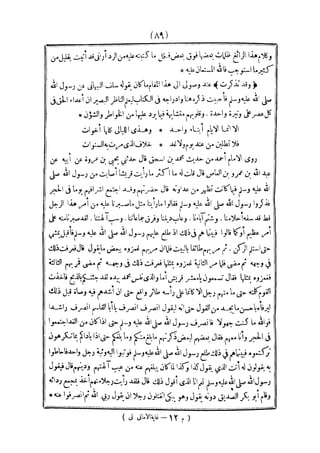 (٨٩)
وكلام هذا الزائغ ظلمات بعضها فوق بعض فكل ما كتبته عليه من الرد اراني قد أتيت بقليل من
كثير ما استوجب فالله المستعان عليه *
﴿وقد تذكرت﴾ عند وصولي الى هذا المقام ما كان يقوله سلف النبهاني عن رسول الله
صلى الله عليه وسلم فأحببت ذكره هنا وادراجه في الكتاب ليعلم الناظر البصير ان أعداء الحق في
كل عصر على وتيرة واحدة . وقلوبهم متشابهة فيما يرد عليها من الخواطر والشؤن *
الا انما الايام أبناء واحد * وهـذى الليالي كلها أخوات
فلا تطلبن من عند يوم ولا غد * خلاف الذي مرت به السنوات
روى الامام أحمد من حديث محمد بن اسحق قال حدثني يحيى بن عروة عن أبيه عن
عبد الله بن عمرو بن العاص قال قلت له ما أكثر ما رأيت قريشاً أصابت من رسول الله صلى
الله عليه وسلم فيما كانت تظهر من عداوته قال حضرتهم وقـد اجتمع اشرافهم يوماً في الحجر
فذكروا رسول الله صلى الله عليه وسلم فقالوا ما رأينا مثل ما صبرنا عليه من أمر هذا الرجل
قط قد سفه أحلامنا . وشتم آباءنا . وعاب ديننا وفرق جماعاتنا . وسب آلهتنا . لقد صبرنا منه على
أمر عظيم أو كما قالوا فبينما هم في ذلك اذ طلع عليهم رسول الله صلى الله عليه وسلم فأقبل يمشي
حتى استلم الركن . ثم مر بهم طائفا بالبيت فلما ان مر بهم غمزوه ببعض ما يقول قال فعرفت ذلك
في وجهه ثم مضى فلما مر الثانية غمزوه بمثلها فعرفت ذلك في وجهه ثم مضى فمر بهم الثالثة
فغمزوه بمثلها فقال تسمعون يا معشر قريش أما والذي نفس محمد بيده لقد جئتكم بالذبح فأخذت
القوم كلمته حتى ما منهم رجل الا كانما على رأسه طائر واقع حتى ان أشدهم فيه وصاة قبل ذلك
ليرفأه باحسن ما يجد من القول حتى انه ليقول انصرف انصرف يا أبا القاسم انصرف راشـدا
فوالله ما كنت جهولا فانصرف رسول الله صلى الله عليه وسلم حتى اذا كان من الغد اجتمعوا
في الحجر وأنا معهم فقال بعضهم لبعض ذكرتم ما بلغ منكم وما بلغكم حتى اذا باداكم بما تكرهون
تركتموه فبينما هم في ذلك طلع رسول الله صلى الله عليه وسلم فوثبوا اليه وثبة رجل واحد فأحاطوا
به يقولون له أنت الذي يقول كذا وكذا لما كان يبلغهم عنه من عيب آلهتهم ودينهم قال فيقول
رسول الله صلى الله عليه وسلم نعم أنا الذي أقول ذلك قال فلقد رأيت رجلا منهم أخذ بمجمع ردائه
وقام أبو بكر الصديق دونه يقول وهو يبكي اتقتلون رجلا ان يقول ربي الله ثم انصرفوا عنه *
(م ١٢ — غاية الاماني ني)